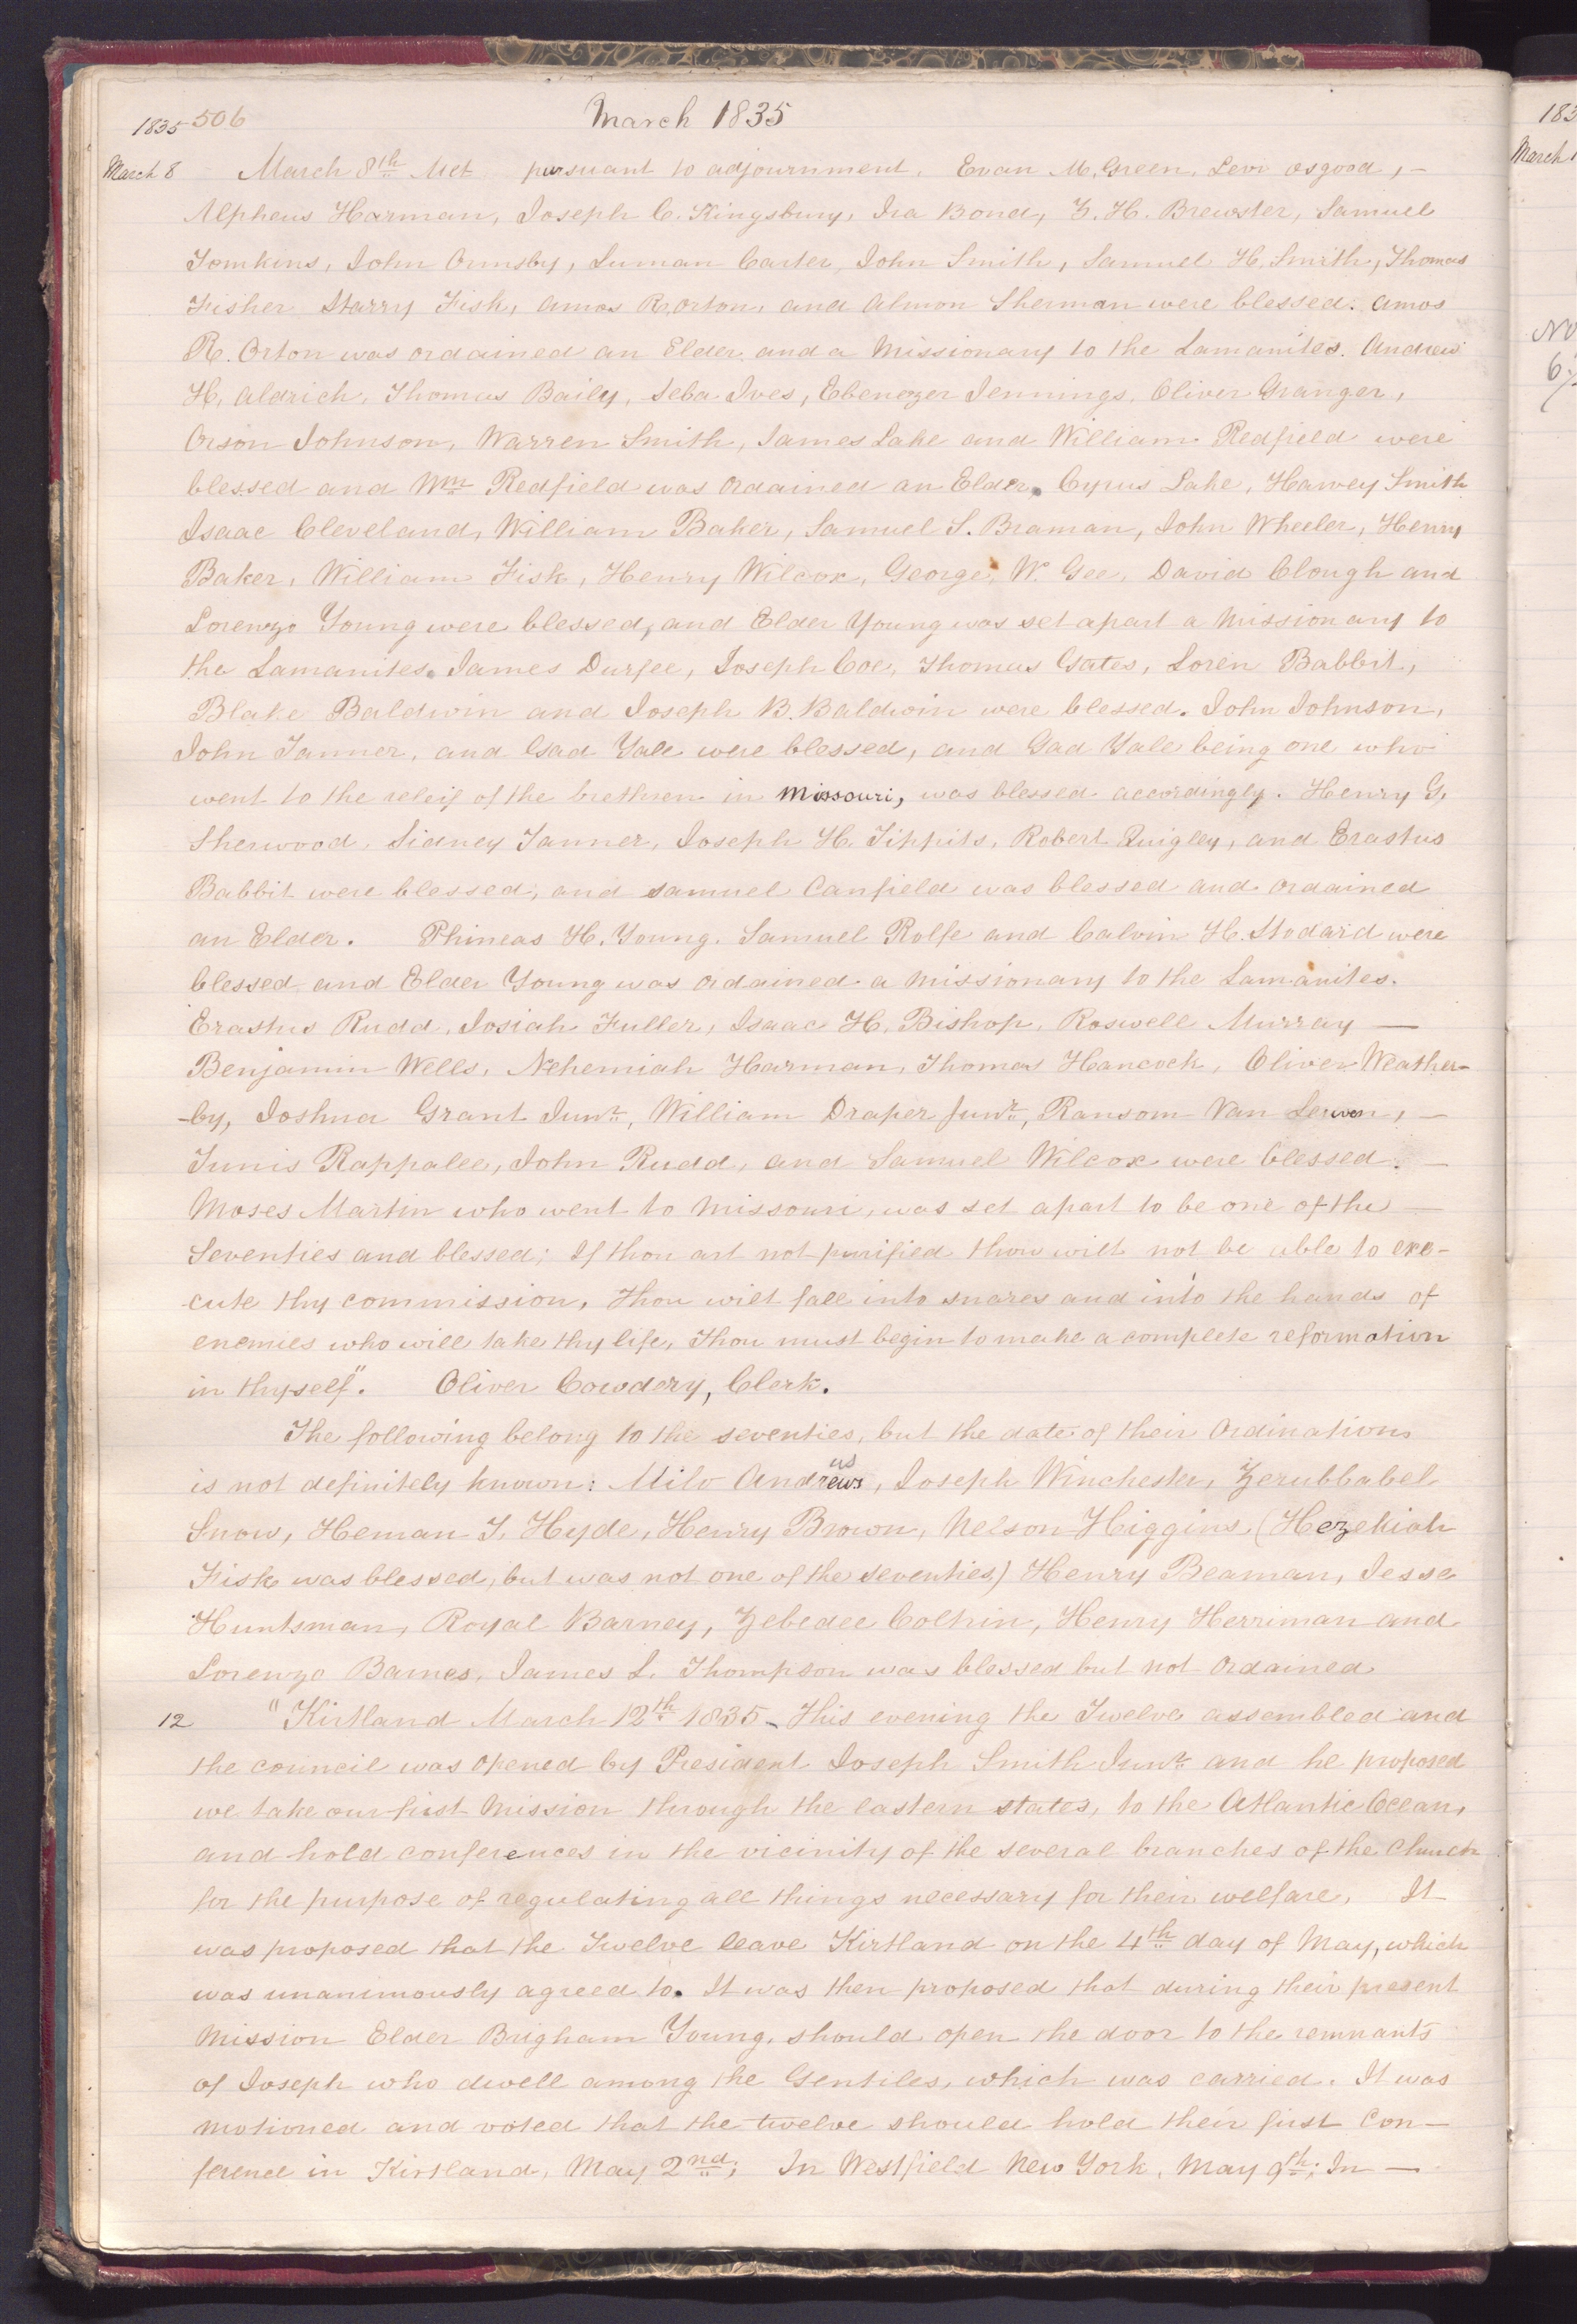 1835 506 March 1835
March 8 March 8th Met pursuant to adjournment. Evan M. Green, Levi osgood, –
Alpheus Harman, Joseph C. Kingsbury, Ira Bond, Z. H. Brewster, Samuel
Tomkins, John Ormsby, Luman Carter, John Smith, Samuel H. Smith, Thomas
Fisher Starry Fisk, Amos R. Orton, and Almon Sherman were blessed. Amos
R. Orton was ordained an Elder and a Missionary to the Lamanites. Andrew
H. Aldrich, Thomas Baily, Seba Ives, Ebenezer Jennings, Oliver Granger,
Orson Johnson, Warren Smith, James Lake and William Redfield were
blessed and Wm Redfield was ordained an Elder. Cyrus Lake, Harvey Smith
Isaac Cleveland, William Baker, Samuel S. Braman, John Wheeler, Henry
Baker, William Fisk, Henry Wilcox, George W. Gee, David Clough and
Lorenzo Young were blessed, and Elder Young was set apart a Missionary to
the Lamanites. James Durfee, Joseph Coe, Thomas Gates, Loren Babbit,
Blake Baldwin and Joseph B. Baldwin were blessed. John Johnson,
John Tanner, and Gad Yale were blessed, and Gad Yale being one who
went to the releif of the brethren in Missouri, was blessed accordingly. Henry G.
Sherwood, Sidney Tanner, Joseph H. Tippits, Robert Quigley, and Erastus
Babbit were blessed, and Samuel Canfield was blessed and ordained
an Elder. Phineas H. Young, Samuel Rolfe and Calvin H. Stodard were
blessed and Elder Young was ordained a missionary to the Lamanites.
Erastus Rudd, Josiah Fuller, Isaac H. Bishop, Roswell Murray —
Benjamin Wells, Nehemiah Harman, Thomas Hancock, Oliver Weather-
-by, Joshua Grant Junr., William Draper Junr., Ransom Van Lerwen, –
Tunis Rappalee, John Rudd, and Samuel Wilcox were blessed. –
Moses Martin who went to Missouri, was set apart to be one of the –
Seventies and blessed; If thou art not purified thou wilt not be able to exe-
-cute thy commission, Thou wilt fall into snares and into the hands of
enemies who will take thy life, Thou must begin to make a complete reformation
in thyself". Oliver Cowdery, Clerk.
The following belong to the seventies, but the date of their Ordinations
is not definitely known: Milo Andrews us, Joseph Winchester, Zerubbabel
Snow, Heman T. Hyde, Henry Brown, Nelson Higgins, (Hezekiah
Fisk was blessed, but was not one of the seventies) Henry Beaman, Jesse
Huntsman, Royal Barney, Zebedee Coltrin, Henry Herriman and
Lorenzo Barnes, James L. Thompson was blessed but not Ordained
12 "Kirtland March 12th 1835. This evening the Twelve assembled and
the council was opened by President Joseph Smith Junr. and he proposed
we take our first Mission through the eastern states, to the Atlantic Ocean,
and hold conferences in the vicinity of the several branches of the Church
for the purpose of regulating all things necessary for their welfare, It
was proposed that the Twelve leave Kirtland on the 4th day of May, which
was unanimously agreed to. It was then proposed that during their present
Mission Elder Brigham Young, should open the door to the remnants
of Joseph who dwell among the Gentiles, which was carried. It was
motioned and voted that the twelve should hold their first Con–
ference in Kirtland, May 2nd; In Westfield New York, May 9th; In —
183
March 1
No